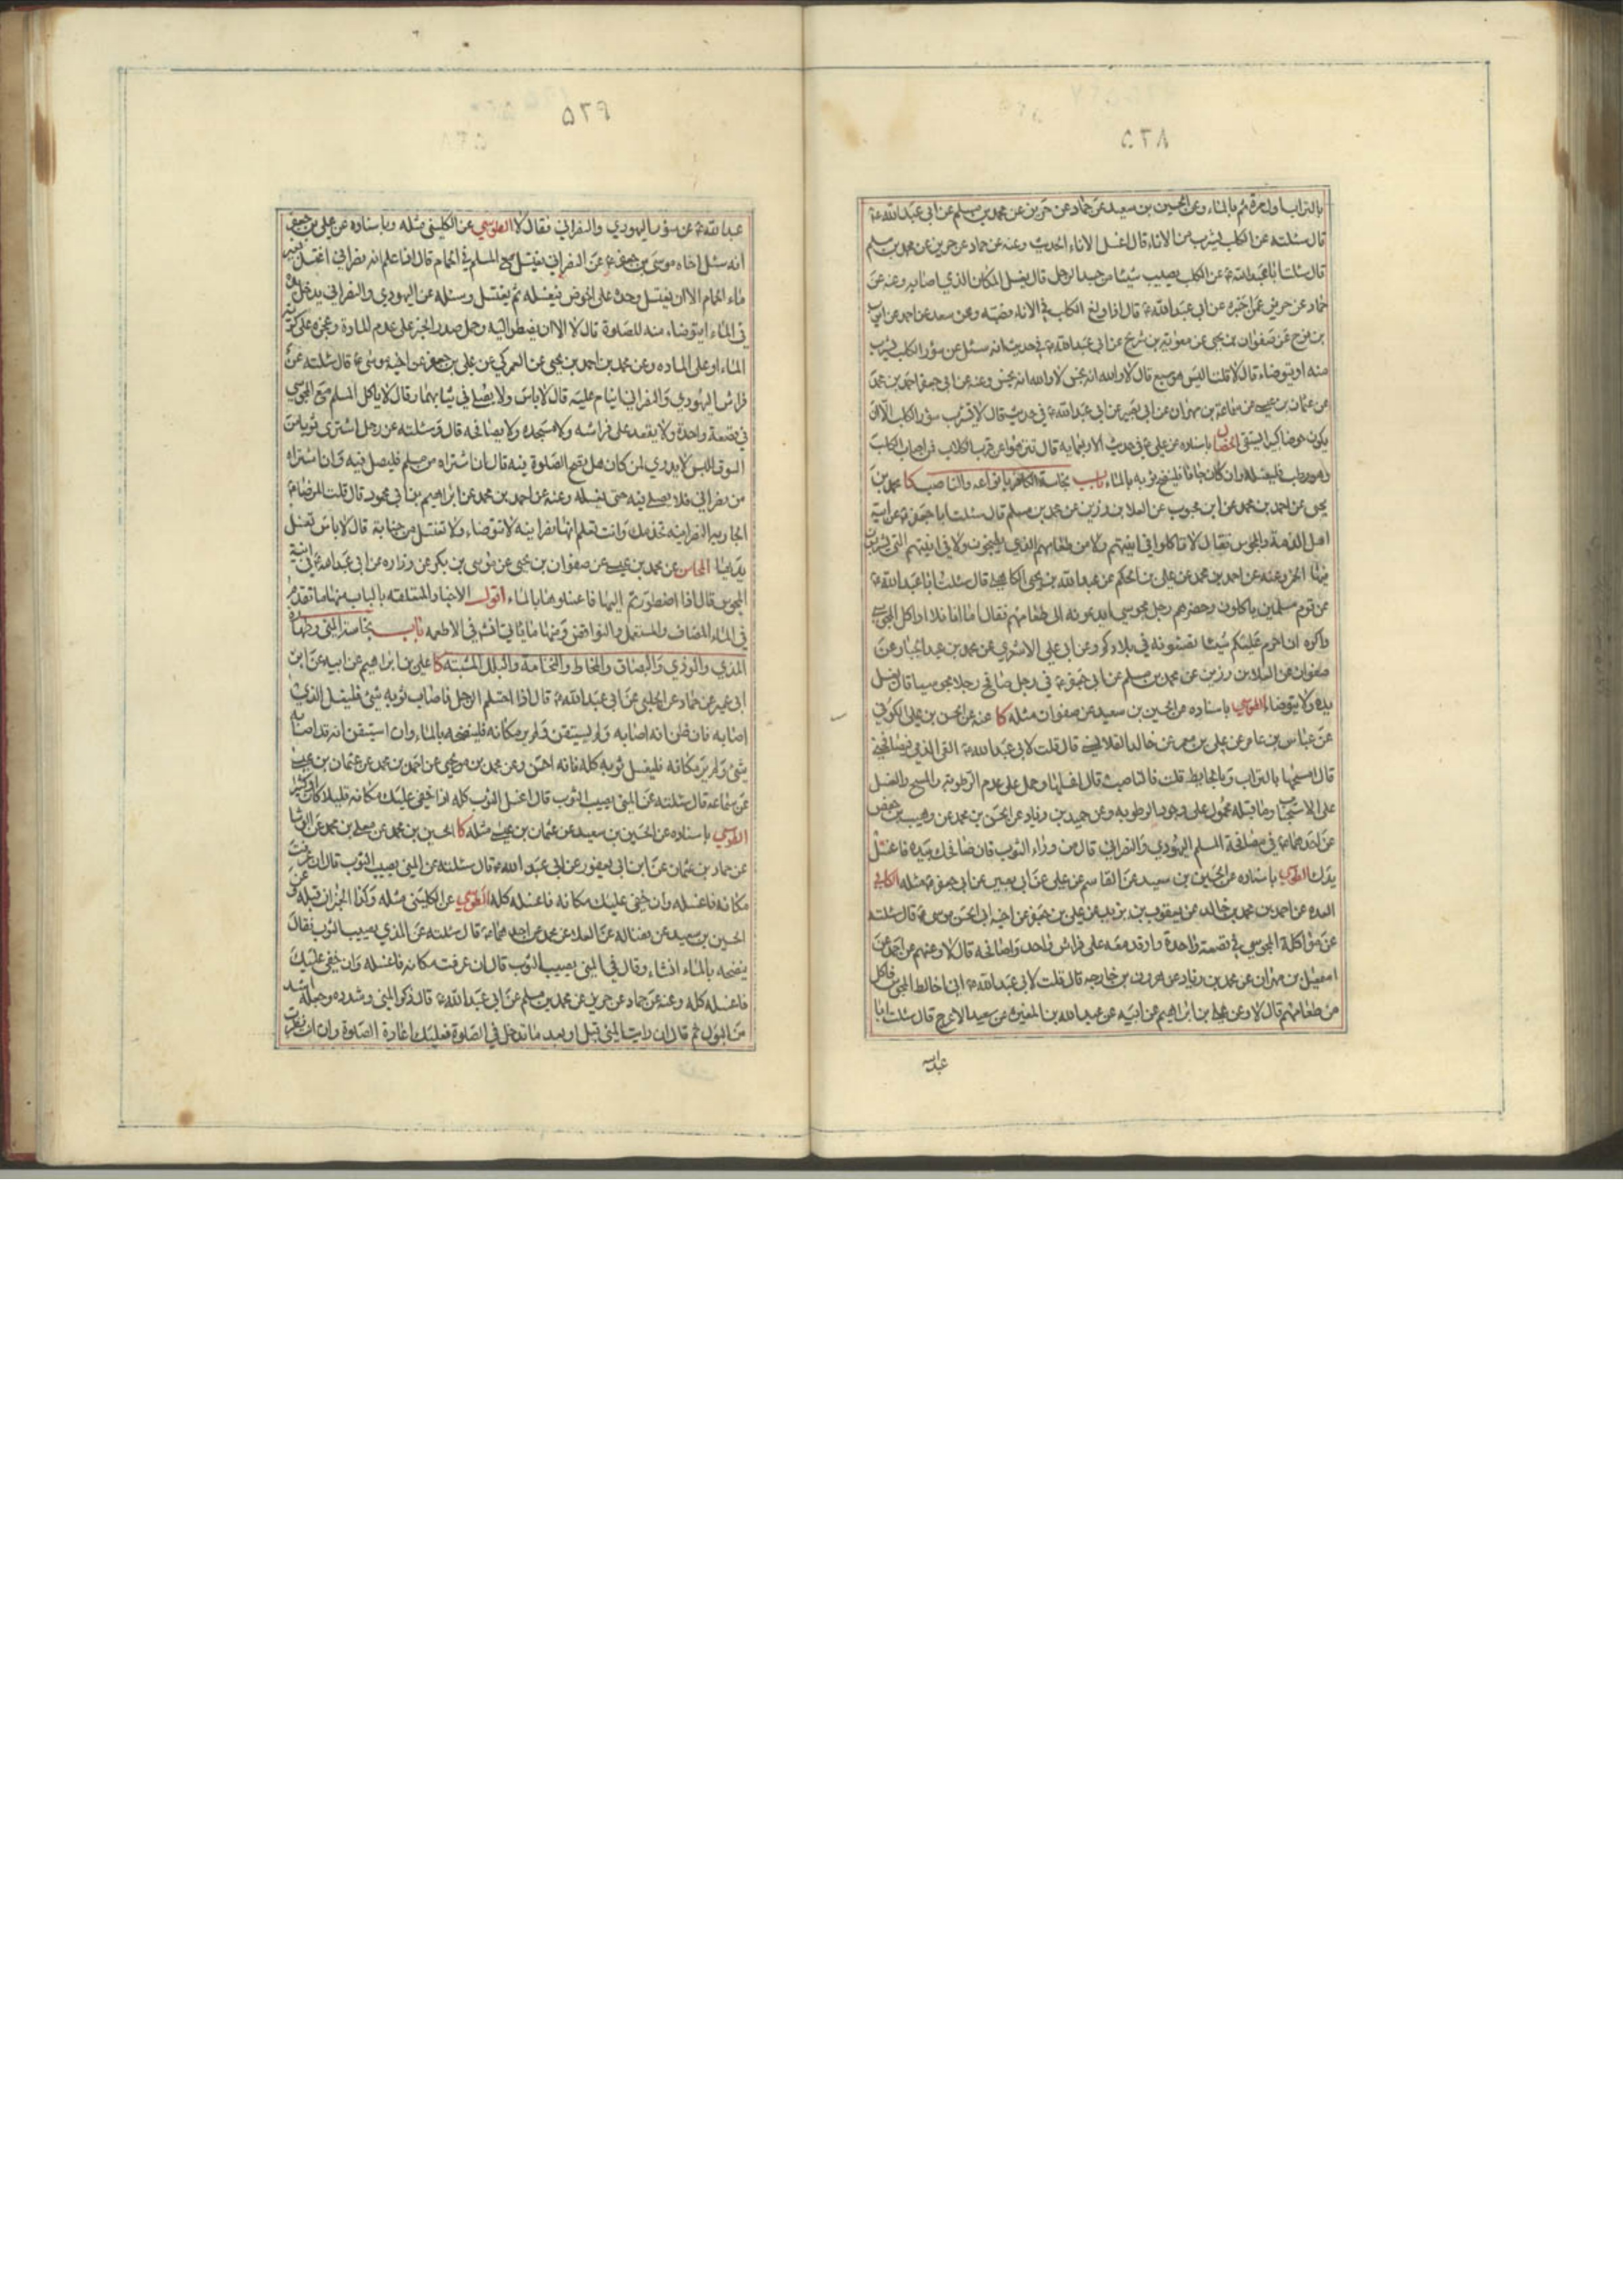 ۵۲۸
بالتراب اول مرة ثم بالماء وعن الحسين بن سعيد عن حماد عن حريز عن محمد بن مسلم عن ابى عبد الله ع
قال سئلته عن الكلب يشرب من الاناء قال اغسل الاناء الحديث وعنه عن حماد عن حريز عن محمد بن مسلم
قال سئلت ابا عبد الله ع عن الكلب يصيب شيئا من جسد الرجل قال يغسل المكان الذي اصابه وعنه عن
حماد عن حريز عمن اخبره عن ابى عبد الله ع قال اذا ولغ الكلب في الاناء فصبه وعن سعد عن احمد عن ايوب
بن نوح عن صفوان بن يحيى عن معوية بن شريح عن ابى عبد الله ع في حديث انه سئل عن سؤر الكلب يشرب
منه او يتوضاء قال لا قلت اليس هو سبع قال لا والله انه نجس لا والله انه نجس وعنه عن ابى جعفر احمد بن محمد
عن عثمان بن عيسى عن سماعة بن مهران عن ابى بصير عن ابى عبد الله ع في حديث قال لا يشرب سؤر الكلب الا ان
يكون حوضا كبيرا يستقى الخصال باسناده عن علي ع في حديث الاربعمايه قال تنزهوا عن قرب الكلاب فمن اصاب الكلب
وهو رطب فليغسله وان كان جافا فلينضح ثوبه بالماء باب نجاسة الكافر بانواعه والناصب كا محمد بن
يحيى عن احمد بن محمد عن ابن محبوب عن العلا بن رزين عن محمد بن مسلم قال سئلت ابا جعفر ع عن انية
اهل الذمة والمجوس فقال لا تاكلوا في انيتهم ولا من طعامهم الذي يطبخون ولا في انيتهم التي يشربون
فيها الخمر وعنه عن احمد بن محمد عن علي بن الحكم عن عبد الله بن يحيى الكاهلي قال سئلت ابا عبد الله ع
عن قوم مسلمين ياكلون وحضرهم رجل مجوسي ايدعونه الى طعامهم فقال اما انا فلا اواكل المجوسي
واكره ان احرم عليكم شيئا تصنعونه في بلادكم وعن ابى علي الاشعري عن محمد بن عبد الجبار عن
صفوان عن العلا بن رزين عن محمد بن مسلم عن ابى جعفر ع في رجل صافح رجلا مجوسيا قال يغسل
يده ولا يتوضاء الطوسي باسناده عن الحسين بن سعيد عن صفوان مثله كا عنه عن الحسن بن علي الكوفي
عن عباس بن عامر عن علي بن معمر عن خالد القلانسي قال قلت لابى عبد الله ع القى الذمي فيصافحني
قال امسحها بالتراب وبالحايط قلت فالناصب قال اغسلها وحمل على عدم الرطوبة والمسح والغسل
على الاستحباب وما قبله محمول على وجود الرطوبه وعن حميد بن زياد عن الحسن بن محمد عن وهيب بن حفص
عن احدهما ع في مصافحة المسلم اليهودي والنصراني قال من وراء الثوب فان صافحك بيده فاغسل
يدك الطوسي باسناده عن الحسين بن سعيد عن القاسم عن علي عن ابى بصير عن ابى جعفر ع مثله الكافي
العده عن احمد بن محمد بن خالد عن يعقوب بن يزيد عن علي بن جعفر عن اخيه ابى الحسن موسى ع قال سئلته
عن مواكلة المجوسي في قصعة واحدة وارقد معه على فراش واحد واصافحه قال لا وعنهم عن احمد عن
اسمعيل بن مهران عن محمد بن زياد عن هرون بن خارجه قال قلت لابى عبد الله ع انى اخالط المجوس فاكل
من طعامهم قال لا وعن علي بن ابراهيم عن ابيه عن عبد الله بن المغيرة عن سعيد الاعرج قال سئلت ابا
عبد الله
۵۲۹
عبد الله ع عن سؤر اليهودي والنصراني فقال لا الطوسي عن الكليني مثله وباسناده عن علي بن جعفر
انه سئل اخاه موسى بن جعفر ع عن النصراني يغتسل مع المسلم في الحمام قال اذا علم انه نصراني اغتسل بغير
ماء الحمام الا ان يغتسل وحده على الحوض فيغسله ثم يغتسل وسئله عن اليهودي والنصراني يدخل يده
في الماء ايتوضاء منه للصلوة قال لا الا ان يضطر اليه وحمل صدر الخبر على عدم المادة وعجزه على كرية
الماء او على الماده وعن محمد بن احمد بن يحيى عن العمركي عن علي بن جعفر عن اخيه موسى ع قال سئلته عن
فراش اليهودي والنصراني اينام عليه قال لا باس ولا يصلي في ثيابهما وقال لا ياكل المسلم مع المجوسي
في قصعة واحدة ولا يقعده على فراشه ولا مسجده ولا يصافحه قال وسئلته عن رجل اشترى ثوبا من
السوق للبس لا يدري لمن كان هل تصح الصلوة فيه قال ان اشتراه من مسلم فليصل فيه وان اشتراه
من نصراني فلا يصلي فيه حتى يغسله وعنه عن احمد بن محمد عن ابراهيم بن ابى محمود قال قلت للرضا ع
الجارية النصرانية تخدمك وانت تعلم انها نصرانية لا تتوضاء ولا تغتسل من جنابة قال لا باس تغسل
يديها المحاسن عن محمد بن عيسى عن صفوان بن يحيى عن موسى بن بكر عن زراره عن ابى عبد الله ع في انية
المجوس قال اذا اضطررتم اليها فاغسلوها بالماء اقول الاخبار المتعلقه بالباب منها ما تقدم
في الماء المضاف والمستعمل والنواقض ومنها ما ياتى في الاطعمه باب نجاسة المني وطهارة
المذي والودي والبصاق والمخاط والنخامة والبلل المشتبه كا علي بن ابراهيم عن ابيه عن ابن
ابى عمير عن حماد عن الحلبي عن ابى عبد الله ع قال اذا احتلم الرجل فاصاب ثوبه شئ فليغسل الذي
اصابه فان ظن انه اصابه ولم يستيقن ولم ير مكانه فلينضحه بالماء وان استيقن انه قد اصابه
شئ ولم ير مكانه فليغسل ثوبه كله فانه احسن وعن محمد بن يحيى عن احمد بن محمد عن عثمان بن عيسى
عن سماعه قال سئلته عن المني يصيب الثوب قال اغسل الثوب كله اذا خفى عليك مكانه قليلا كان او كثيرا
الطوسي باسناده عن الحسين بن سعيد عن عثمان بن عيسى مثله كا الحسين بن محمد عن معلى بن محمد عن الوشا
عن حماد بن عثمان عن ابن ابى يعفور عن ابى عبد الله ع قال سئلته عن المني يصيب الثوب قال ان عرفت
مكانه فاغسله وان خفى عليك مكانه فاغسله كله الطوسي عن الكليني مثله وكذا الخبران قبله وعن
الحسين بن سعيد عن فضاله عن العلا عن محمد عن احدهما ع قال سئلته عن المذي يصيب الثوب فقال
ينضحه بالماء ان شاء وقال في المني يصيب الثوب قال ان عرفت مكانه فاغسله وان خفى عليك
فاغسله كله وعنه عن حماد عن حريز عن محمد بن مسلم عن ابى عبد الله ع قال ذكر المني وشدده وجعله اشد
من البول ثم قال ان رايت المني قبل او بعد ما تدخل في الصلوة فعليك اعادة الصلوة وان انت نظرت